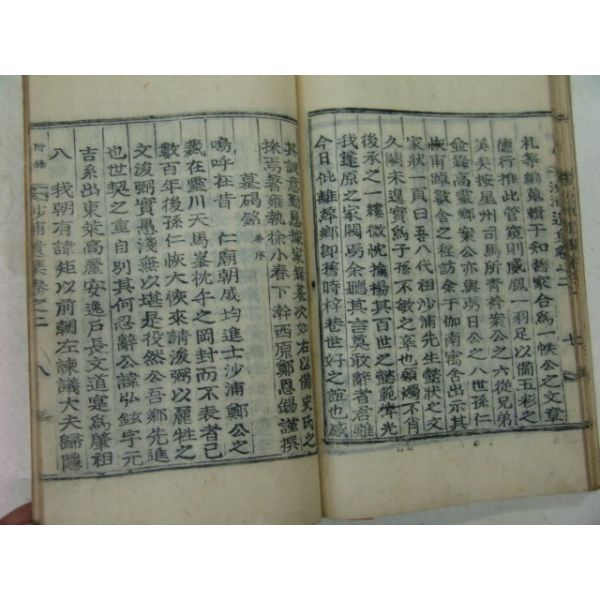 札等編蒐輯于知舊家合爲一帙公之文章
德行推此管窺則威鳳一羽足以備五彩之
美矣按星州司馬所靑衿案公之六從兄弟
金鋒高靈鄉案公亦與焉日公之八世孫仁
恢甫踔數舍之程訪余于伽南寓舍出示其
家狀一頁曰吾八代祖沙浦先生懿狀之文
久闕未遑實爲子孫不敏之辜也顧燭不肖
後承之一縷微忱掄揚其百世之懿範偉光
我蓬原之家閥焉余聽其言莫敢辭者君雖
今日仳離葬鄉卽舊時梓巷世好之誼也感
其詞意勤恳據家錄纂次如右以備史氏之
採焉耆雍執徐小春下澣西原鄭恩錫謹撰
墓碣銘 幷序
嗚呼在昔 仁廟朝成均進士沙浦鄭公之
藏在靈川天馬峯枕午之岡封而不表者已
數百年後孫仁恢大恢來請浚弼以麗牲之
文浚弼實愚淺無以堪是役然公吾鄉先進
也世契之重自別其何忍辭公諱弘鉉字元
吉系出東萊高麗安逸戶長文道寔爲肇祖
入 我朝有諱矩以前朝左諫議大夫歸隱
附錄 沙浦遺集卷之二 八